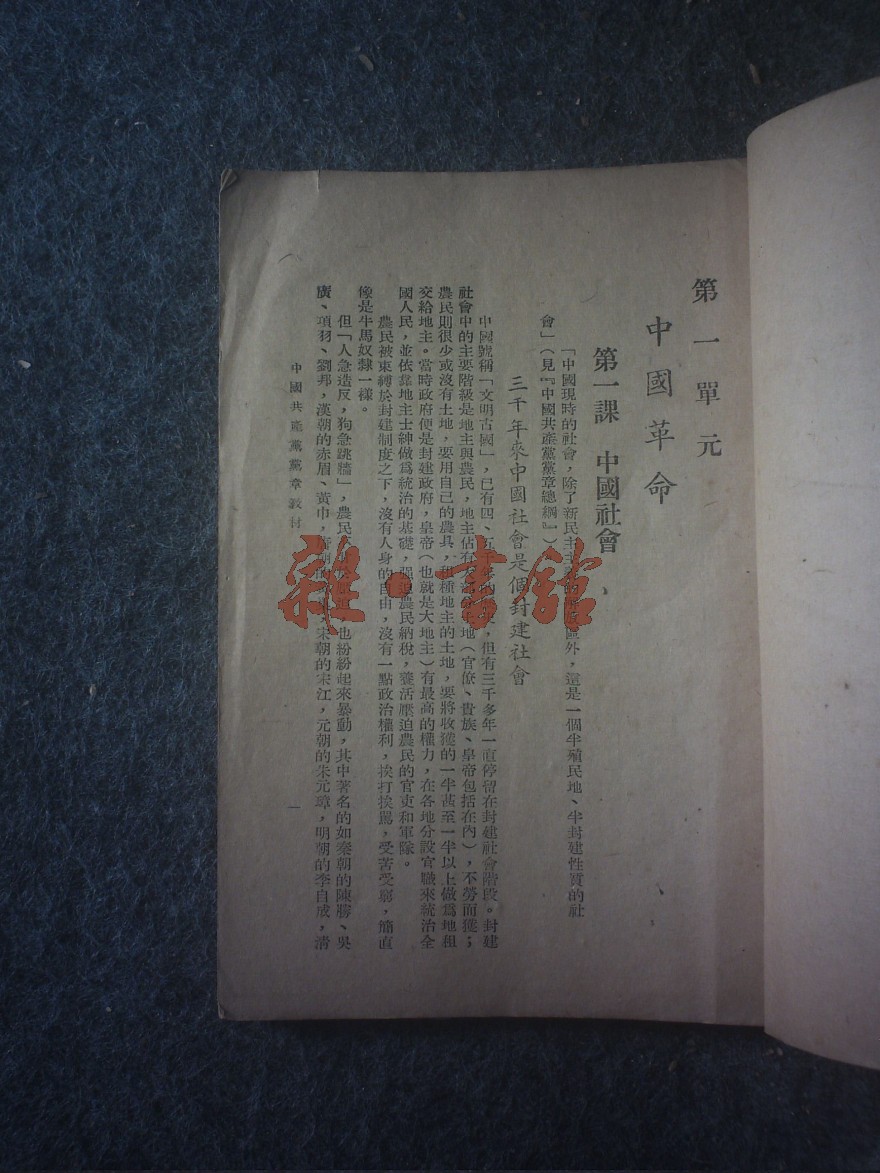 第一單元
中國革命
第一課 中國社會
「中國現時的社會，除了新民主主義的解放區外，這是一個半殖民地、半封建性質的社
會」（見『中國共產黨黨章總綱』）
三千年來中國社會是個封建社會
中國號稱「文明古國」，已有四、五千年的歷史，但有三千多年一直停留在封建社會階段。封建
社會中的主要階級是地主與農民，地主佔有大部分土地（官僚、貴族、皇帝包括在內），不勞而獲；
農民則很少或沒有土地，要用自己的農具，租種地主的土地，要將收獲的一半甚至一半以上做爲地租
交給地主。當時政府便是封建政府，皇帝（也就是大地主）有最高的權力，在各地分設官職來統治全
國人民，並依靠地主士紳做爲統治的基礎，强迫農民納稅，養活壓迫農民的官吏和軍隊。
農民被束縛於封建制度之下，沒有人身的自由，沒有一點政治權利，挨打挨駡，受苦受窮，簡直
像是牛馬奴隸一樣。
但「人急造反，狗急跳牆」，農民 也紛紛起來暴動，其中著名的如秦朝的陳勝、吳
廣、項羽、劉邦，漢朝的赤眉、黃巾， 宋朝的宋江，元朝的朱元璋，明朝的李自成，清
中國共產黨黨章教材
一
雜·書館